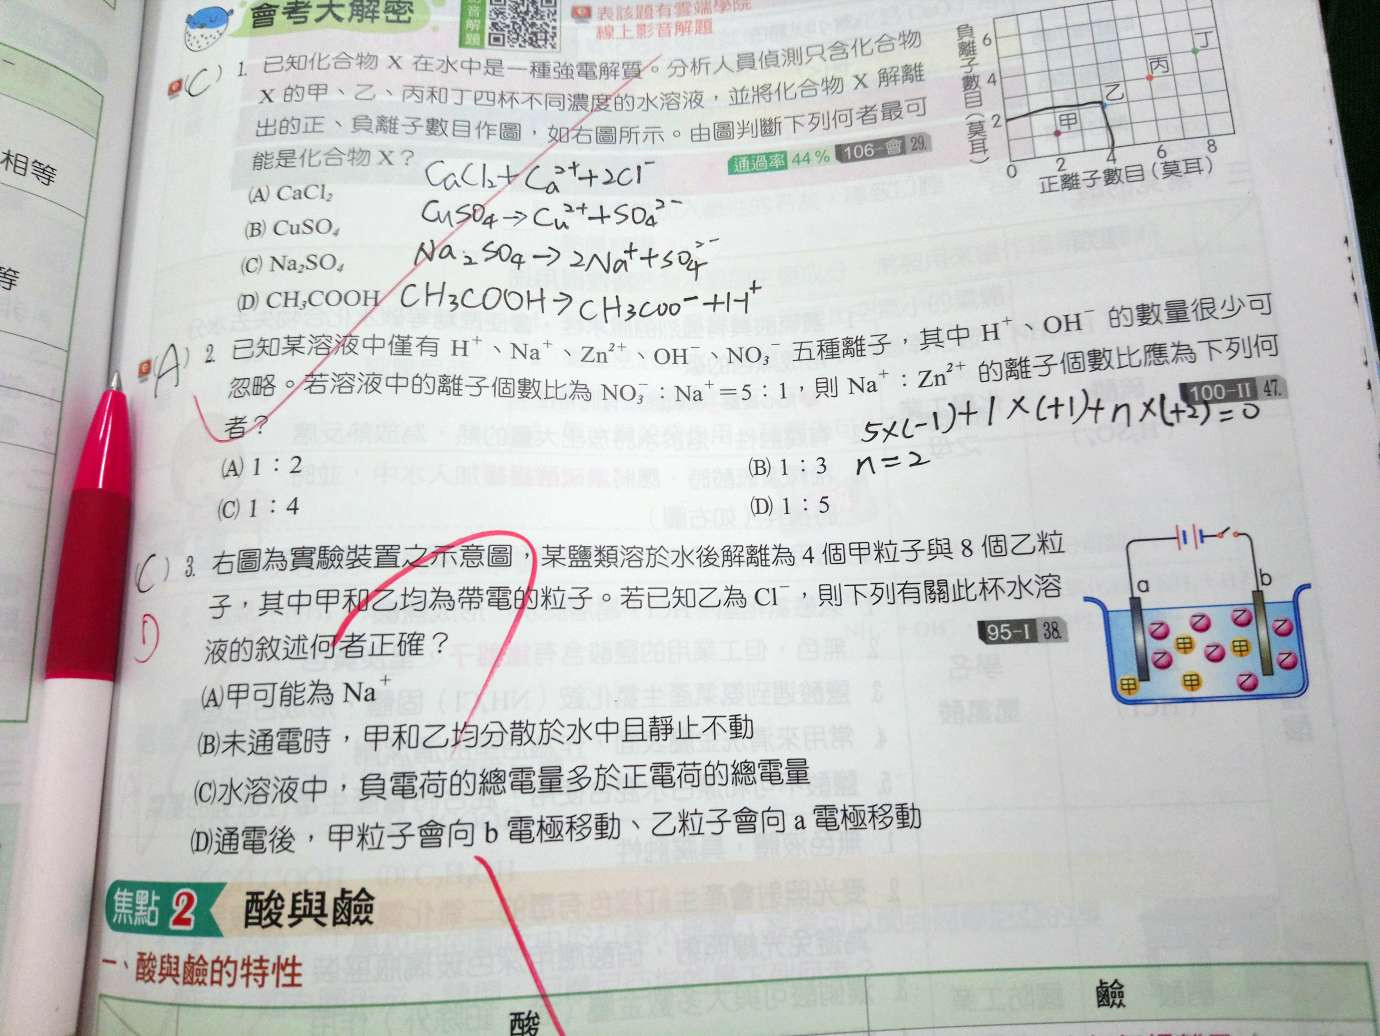 會考大解密
影音解題
表該題有雲端學院
線上影音解題
(C) 1. 已知化合物 X 在水中是一種強電解質。分析人員偵測只含化合物
X 的甲、乙、丙和丁四杯不同濃度的水溶液，並將化合物 X 解離
出的正、負離子數目作圖，如右圖所示。由圖判斷下列何者最可
能是化合物 X？
通過率 44% 106-會 29.
(A) CaCl₂
(B) CuSO₄
(C) Na₂SO₄
(D) CH₃COOH
CaCl₂→Ca²⁺+2Cl⁻
CuSO₄→Cu²⁺+SO₄²⁻
Na₂SO₄→2Na⁺+SO₄²⁻
CH₃COOH→CH₃COO⁻+H⁺
負離子數目(莫耳)
6
4
2
0 2 4 6 8
甲
乙
丙
丁
正離子數目(莫耳)
(A) 2. 已知某溶液中僅有 H⁺、Na⁺、Zn²⁺、OH⁻、NO₃⁻ 五種離子，其中 H⁺、OH⁻ 的數量很少可
忽略。若溶液中的離子個數比為 NO₃⁻：Na⁺＝5：1，則 Na⁺：Zn²⁺ 的離子個數比應為下列何
者？
100-II 47.
5×(-1)+1×(+1)+n×(+2)=0
n=2
(A) 1：2
(B) 1：3
(C) 1：4
(D) 1：5
(C) 3. 右圖為實驗裝置之示意圖，某鹽類溶於水後解離為 4 個甲粒子與 8 個乙粒
子，其中甲和乙均為帶電的粒子。若已知乙為 Cl⁻，則下列有關此杯水溶
D
液的敘述何者正確？
95-I 38.
(A)甲可能為 Na⁺
(B)未通電時，甲和乙均分散於水中且靜止不動
(C)水溶液中，負電荷的總電量多於正電荷的總電量
(D)通電後，甲粒子會向 b 電極移動、乙粒子會向 a 電極移動
a
b
乙 乙 乙 乙
乙 甲 乙 甲 乙
甲 甲 乙
焦點 2 酸與鹼
一、酸與鹼的特性
酸
鹼
相等
等